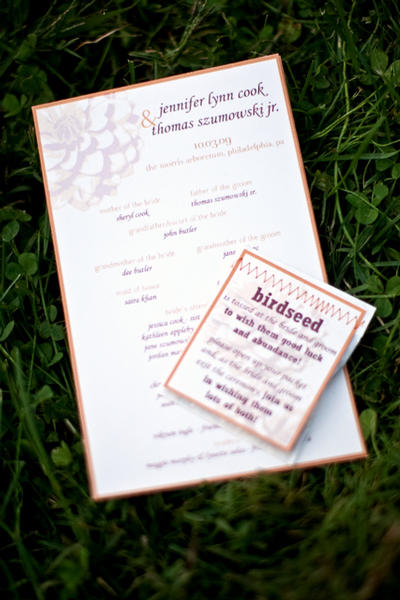 jennifer lynn cook
& thomas szumowski jr.
10.03.09
the morris arboretum, philadelphia, pa
mother of the bride
sheryl cook
father of the groom
thomas szumowski sr.
grandfather/escort of the bride
john butler
grandmother of the bride
dee butler
grandmother of the groom
jane
maid of honor
saira khan
bride's
jessica cook - sist
kathleen appleby
jane szumows
jordan mar
birdseed
is tossed at the bride and groom
to wish them good luck
and abundance!
please open up your packet
and, as the bride and groom
exit the ceremony, join us
in wishing them
lots of both!